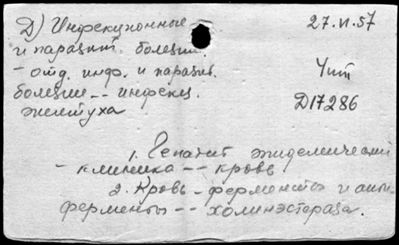 Д) Инфекционные
27.VI.57
и паразит. болезни.
- отд. инф. и паразит.
Чит
болезни -- инфекц.
D17286
желтуха
1. Гепатит эпидемический
- клиника -- кровь
2. Кровь - ферменты и
ферменты -- холинэстераза.